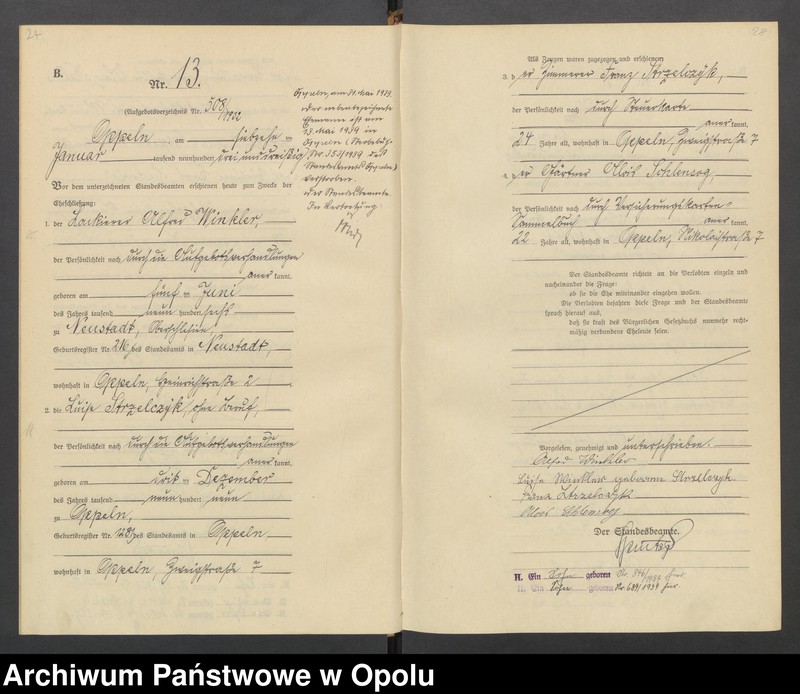 27
B.
Nr. 13.
(Aufgebotsverzeichnis Nr. 508/1932
Oppeln, am siebzehn =
Januar tausend neunhundert drei und dreißig
Vor dem unterzeichneten Standesbeamten erschienen heute zum Zwecke der
Eheschließung:
1. der Lackierer Alfred Winkler,
der Persönlichkeit nach durch die Aufgebotsverhandlungen
anerkannt,
geboren am fünf = Juni
des Jahres tausend neunhundert sechs
zu Neustadt, Oberschlesien,
Geburtsregister Nr. des Standesamts in Neustadt,
wohnhaft in Oppeln, Heinrichstraße 2
2. die Luise Strzelczyk, ohne Beruf,
der Persönlichkeit nach durch die Aufgebotsverhandlungen
anerkannt,
geboren am drit = Dezember
des Jahres tausend neunhundert neun
zu Oppeln,
Geburtsregister Nr. des Standesamts in Oppeln,
wohnhaft in Oppeln, Zweigstraße 7
Oppeln, am 31. Mai 1939
Der nebenbezeichnete
Ehemann ist am
Mai 1939 in
Oppeln (Sterbeb.
Nr. 353/1939 des
Standesamts Oppeln)
verstorben.
Der Standesbeamte
In Vertretung
28
Als Zeugen waren zugezogen und erschienen:
3. der Zimmerer Franz Strzelczyk,
der Persönlichkeit nach durch Steuerkarte
anerkannt,
24 Jahre alt, wohnhaft in Oppeln, Zweigstraße 7
4. der Gärtner Alois Schlensog,
der Persönlichkeit nach durch Versicherungskarten=
Sammelbuch anerkannt,
22 Jahre alt, wohnhaft in Oppeln, Nikolaistraße 7
Der Standesbeamte richtete an die Verlobten einzeln und
nacheinander die Frage:
ob sie die Ehe miteinander eingehen wollen.
Die Verlobten bejahten diese Frage und der Standesbeamte
sprach hierauf aus,
daß sie kraft des Bürgerlichen Gesetzbuchs nunmehr recht-
mäßig verbundene Eheleute seien.
Vorgelesen, genehmigt und unterschrieben.
Alfred Winkler
Luise Winkler geborene Strzelczyk
Franz Strzelczyk
Alois Schlensog
Der Standesbeamte.
II. Ein Sohn geboren Nr.
II. Ein Sohn geboren Nr. 689/1934
Archiwum Państwowe w Opolu